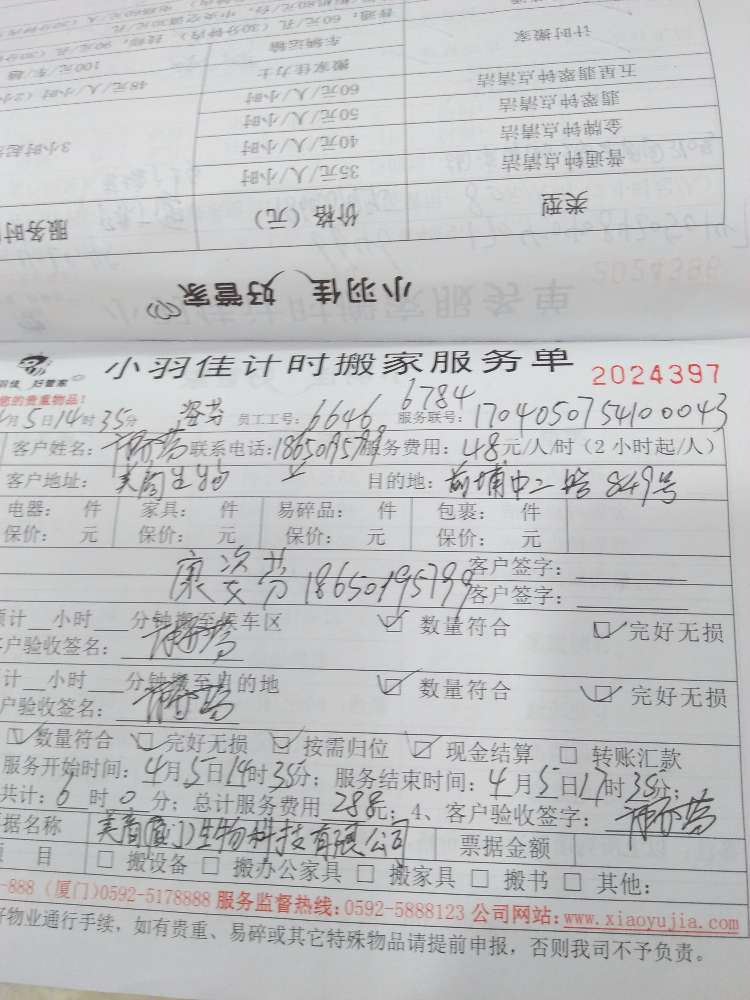 计时搬家
车辆运输
100元/车/趟
搬家佳力士
48元/人/小时
五星翡翠钟点清洁
60元/人/小时
翡翠钟点清洁
50元/人/小时
金牌钟点清洁
40元/人/小时
普通钟点清洁
35元/人/小时
类型
价格(元)
小羽佳 好管家
小羽佳计时搬家服务单
2024397
羽佳 好管家
您的贵重物品!
月5日14时35分
员工工号: 6646 6784
服务联号: 1704050754100043
客户姓名:
联系电话: 18650195799
服务费用: 48元/人/时(2小时起/人)
客户地址: 美商生物
目的地: 前埔中二路849号
电器: 件 家具: 件 易碎品: 件 包裹: 件
保价: 元 保价: 元 保价: 元 保价: 元
18650195799
客户签字:
客户签字:
预计 小时 分钟搬至候车区
数量符合 完好无损
客户验收签名:
预计 小时 分钟搬至目的地
数量符合 完好无损
客户验收签名:
数量符合 完好无损 按需归位 现金结算 转账汇款
服务开始时间: 4月5日14时35分; 服务结束时间: 4月5日17时35分;
共计: 6时0分; 总计服务费用 288元; 4、客户验收签字:
票据名称 美商(厦门)生物科技有限公司 票据金额
项目 搬设备 搬办公家具 搬家具 搬书 其他:
-888 (厦门)0592-5178888 服务监督热线:0592-5888123 公司网站:www.xiaoyujia.com
好物业通行手续,如有贵重、易碎或其它特殊物品请提前申报,否则我司不予负责。